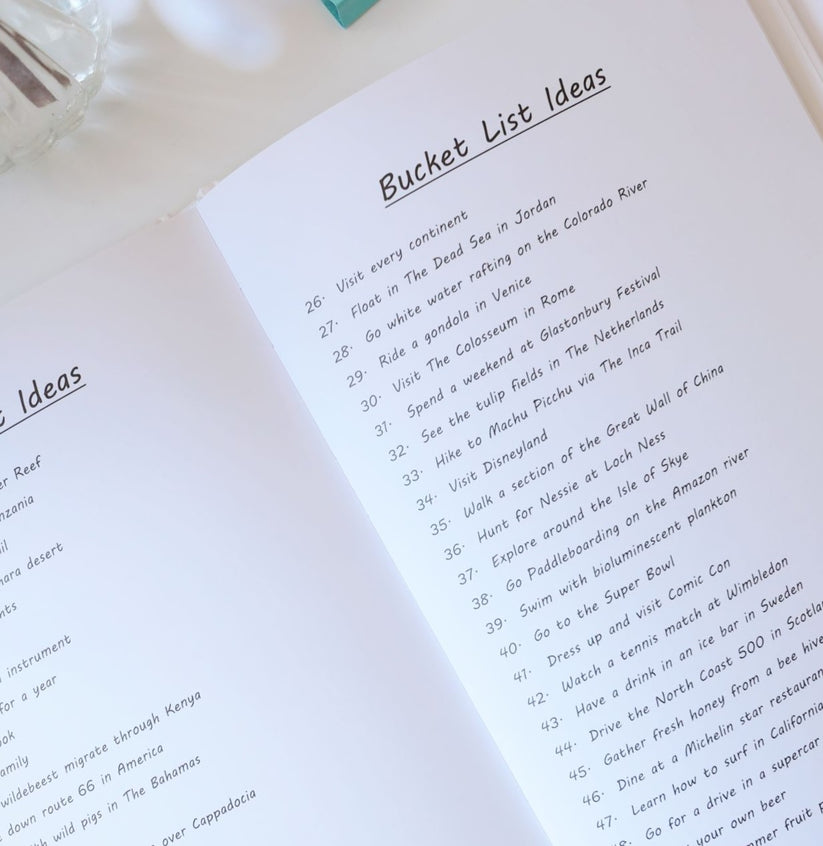 Ideas
er Reef
nzania
il
hara desert
nts
instrument
for a year
ok
amily
wildebeest migrate through Kenya
down route 66 in America
th wild pigs in The Bahamas
over Cappadocia
Bucket List Ideas
26. Visit every continent
27. Float in The Dead Sea in Jordan
28. Go white water rafting on the Colorado River
29. Ride a gondola in Venice
30. Visit The Colosseum in Rome
31. Spend a weekend at Glastonbury Festival
32. See the tulip fields in The Netherlands
33. Hike to Machu Picchu via The Inca Trail
34. Visit Disneyland
35. Walk a section of the Great Wall of China
36. Hunt for Nessie at Loch Ness
37. Explore around the Isle of Skye
38. Go Paddleboarding on the Amazon river
39. Swim with bioluminescent plankton
40. Go to the Super Bowl
41. Dress up and visit Comic Con
42. Watch a tennis match at Wimbledon
43. Have a drink in an ice bar in Sweden
44. Drive the North Coast 500 in Scotla
45. Gather fresh honey from a bee hive
46. Dine at a Michelin star restauran
47. Learn how to surf in California
Go for a drive in a supercar
your own beer
fruit